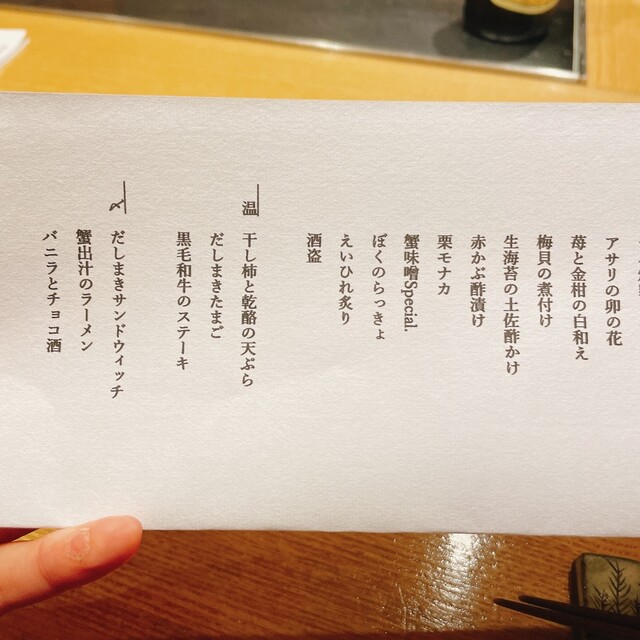 アサリの卯の花
苺と金柑の白和え
梅貝の煮付け
生海苔の土佐酢かけ
赤かぶ酢漬け
栗モナカ
蟹味噌Special.
ぼくのらっきょ
えいひれ炙り
酒盗
温
干し柿と乾酪の天ぷら
だしまきたまご
黒毛和牛のステーキ
〆
だしまきサンドウィッチ
蟹出汁のラーメン
バニラとチョコ酒